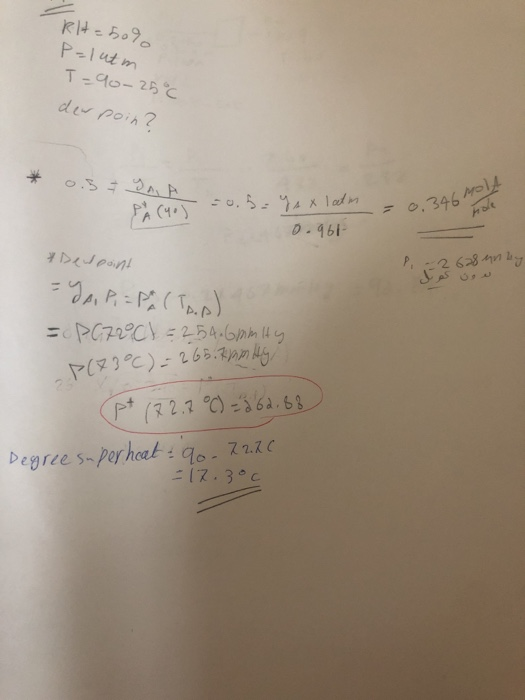 RH = 50%
P = 1 atm
T = 90 - 25°C
dew poin?
* 0.5 = yA, P / P*A (90) = 0.5 = yA x 1 atm / 0.961 = 0.346 molA/mole
* Dew point
= yA, P, = P*A (TD.P)
= P(72°C) = 254.6 mmHg
P(73°C) = 265.7 mmHg
P* (72.7°C) = 262.68
Degree superheat = 90 - 72.7C
= 17.3°C